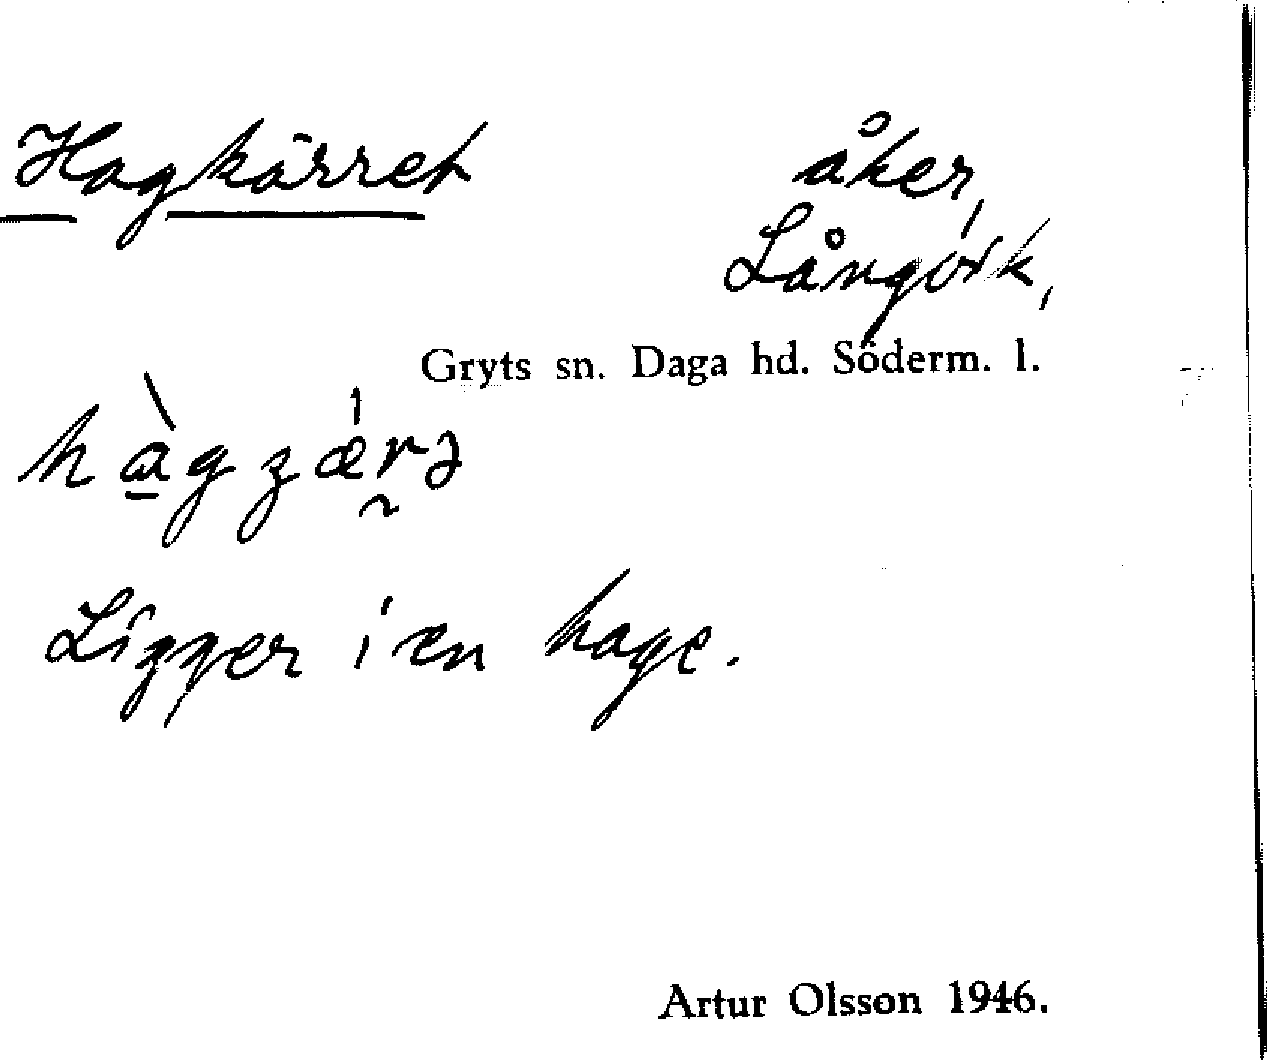 Hagkärret
åker,
Långvik,
Gryts sn. Daga hd. Söderm. l.
Ligger i en hage.
Artur Olsson 1946.